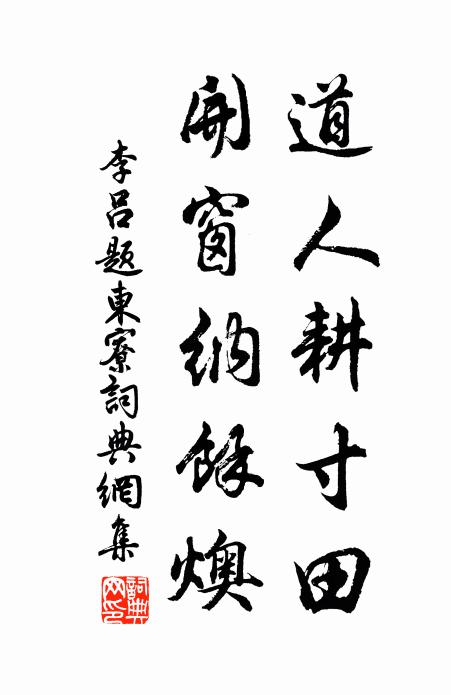 道人耕寸田
開窗納餘燠
李呂題東寮詞典網集
詞典網印